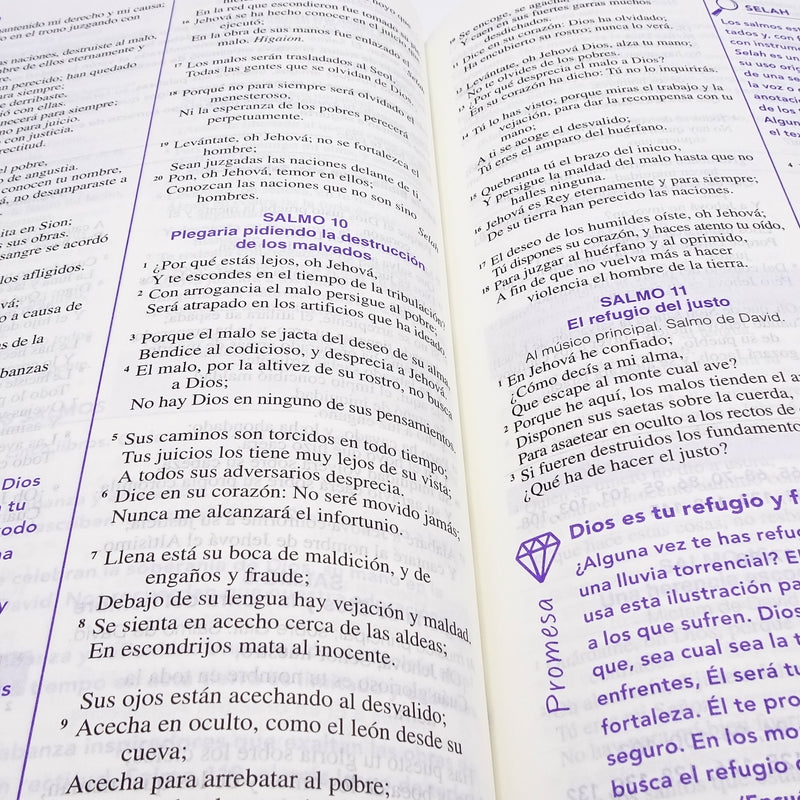 mantenido mi derecho y mi causa;
en el trono juzgando con
naciones, destruiste al malo,
de ellos eternamente y
han perecido; han quedado
para siempre;
derribaste.
con ellas.
para siempre;
para juicio.
con justicia,
rectitud.
pobre,
de angustia.
conocen tu nombre,
no desamparaste a
habita en Sion;
sus obras.
sangre se acordó
los afligidos.
a causa de
de la
Dios
tu
todo
En la red que escondieron fue tomado su pie.
16 Jehová se ha hecho conocer en el juicio que
ejecutó;
En la obra de sus manos fue enlazado el
malo. Higaion.
17 Los malos serán trasladados al Seol,
Todas las gentes que se olvidan de Dios.
18 Porque no para siempre será olvidado el
menesteroso,
Ni la esperanza de los pobres perecerá
perpetuamente.
19 Levántate, oh Jehová; no se fortalezca el
hombre;
Sean juzgadas las naciones delante de ti.
20 Pon, oh Jehová, temor en ellos;
Conozcan las naciones que no son sino
hombres. Selah
SALMO 10
Plegaria pidiendo la destrucción
de los malvados
1 ¿Por qué estás lejos, oh Jehová,
Y te escondes en el tiempo de la tribulación?
2 Con arrogancia el malo persigue al pobre;
Será atrapado en los artificios que ha ideado.
3 Porque el malo se jacta del deseo de su alma,
Bendice al codicioso, y desprecia a Jehová.
4 El malo, por la altivez de su rostro, no busca
a Dios;
No hay Dios en ninguno de sus pensamientos.
5 Sus caminos son torcidos en todo tiempo;
Tus juicios los tiene muy lejos de su vista;
A todos sus adversarios desprecia.
6 Dice en su corazón: No seré movido jamás;
Nunca me alcanzará el infortunio.
7 Llena está su boca de maldición, y de
engaños y fraude;
Debajo de su lengua hay vejación y maldad.
8 Se sienta en acecho cerca de las aldeas;
En escondrijos mata al inocente.
Sus ojos están acechando al desvalido;
9 Acecha en oculto, como el león desde su
cueva;
Acecha para arrebatar al pobre;
Se encoge, se agacha,
Y caen en sus fuertes garras muchos
desdichados.
11 Dice en su corazón: Dios ha olvidado;
Ha encubierto su rostro; nunca lo verá.
12 Levántate, oh Jehová Dios, alza tu mano;
No te olvides de los pobres.
13 ¿Por qué desprecia el malo a Dios?
En su corazón ha dicho: Tú no lo inquirirás.
14 Tú lo has visto; porque miras el trabajo y la
vejación, para dar la recompensa con tu
mano;
A ti se acoge el desvalido;
Tú eres el amparo del huérfano.
15 Quebranta tú el brazo del inicuo,
Y persigue la maldad del malo hasta que no
halles ninguna.
16 Jehová es Rey eternamente y para siempre;
De su tierra han perecido las naciones.
17 El deseo de los humildes oíste, oh Jehová;
Tú dispones su corazón, y haces atento tu oído,
18 Para juzgar al huérfano y al oprimido,
A fin de que no vuelva más a hacer
violencia el hombre de la tierra.
SALMO 11
El refugio del justo
Al músico principal. Salmo de David.
1 En Jehová he confiado;
¿Cómo decís a mi alma,
Que escape al monte cual ave?
2 Porque he aquí, los malos tienden el
Disponen sus saetas sobre la cuerda,
Para asaetear en oculto a los rectos de
3 Si fueren destruidos los fundamentos
¿Qué ha de hacer el justo?
Promesa
Dios es tu refugio y
¿Alguna vez te has
una lluvia torrencial?
usa esta ilustración
a los que sufren. Dios
que, sea cual sea la
enfrentes, Él será tu
fortaleza. Él te
seguro. En los
busca el refugio
SELAH
Los salmos